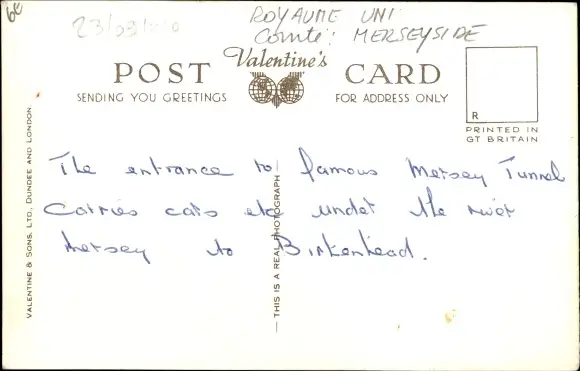 6€
ROYAUME UNI
Comté: MERSEYSIDE
Valentine's
POST CARD
SENDING YOU GREETINGS
FOR ADDRESS ONLY
R
PRINTED IN
GT BRITAIN
VALENTINE & SONS, LTD., DUNDEE AND LONDON.
— THIS IS A REAL PHOTOGRAPH —
The entrance to famous Mersey Tunnel
Carries cars etc under the river
Mersey to Birkenhead.